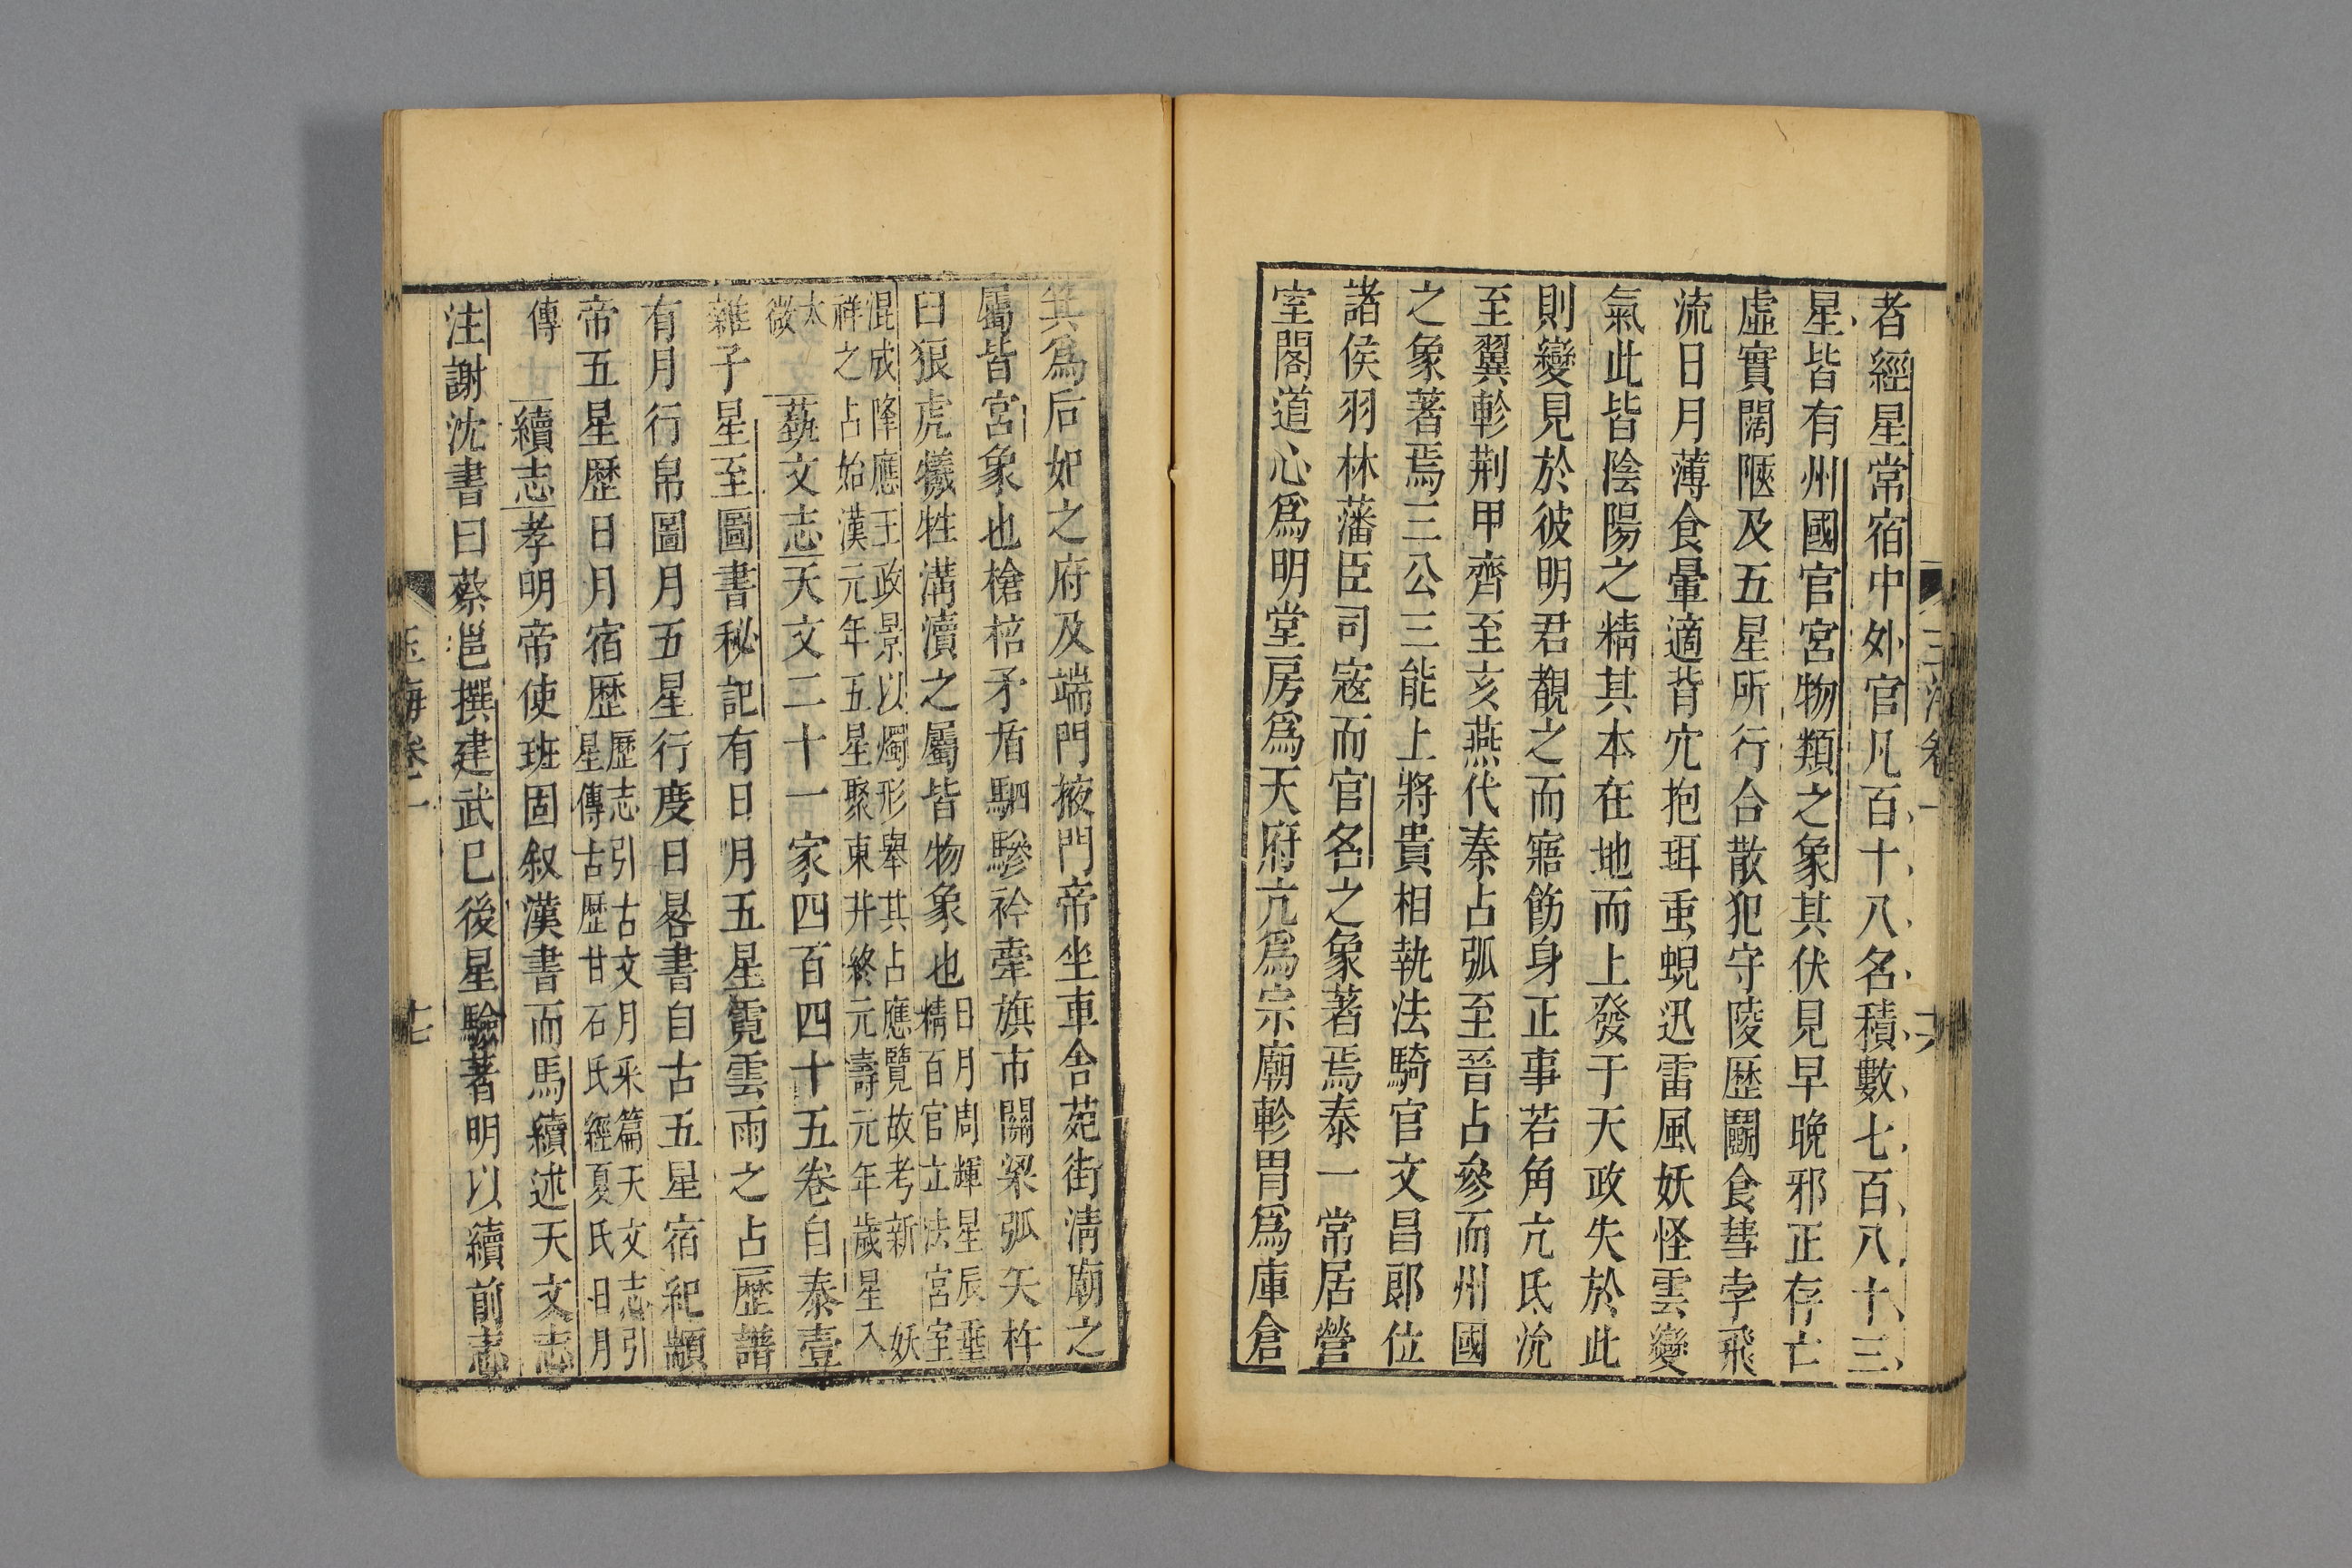 者經星常宿中外官凡百十八名積數七百八十三
星皆有州國官宮物類之象其伏見早晚邪正存亡
虛實闊陿及五星所行合散犯守陵歷鬬食彗孛飛
流日月薄食暈適背宂抱珥重蜺迅雷風妖怪雲變
氣此皆陰陽之精其本在地而上發于天政失於此
則變見於彼明君覩之而寤飭身正事若角亢氐沇
至翼軫荆甲齊至亥燕代秦占弧至晉占參而州國
之象著焉三公三能上將貴相執法騎官文昌郎位
諸侯羽林藩臣司寇而官名之象著焉泰一常居營
室閣道心爲明堂房爲天府亢爲宗廟軫胃爲庫倉
玉海卷一
六
箕爲后妃之府及端門掖門帝坐車舍苑街淸廟之
屬皆宮象也槍棓矛盾駟驂衿牽旗市關梁弧矢杵
臼狼虎犧牲溝瀆之屬皆物象也
日月周輝星辰垂
精百官立法宮室
混成降應王政景以燭形舉其占應覽故考新 妖
祥之占始漢元年五星聚東井終元壽元年歲星入
太
微
藝文志天文二十一家四百四十五卷自泰壹
雜子星至圖書秘記有日月五星霓雲雨之占歷譜
有月行帛圖月五星行度日晷書自古五星宿紀顓
帝五星歷日月宿歷
歷志引古文月采篇天文志引
星傳古歷甘石氏經夏氏日月
傳
續志孝明帝使班固叙漢書而馬續述天文志
注謝沈書曰蔡邕撰建武巳後星驗著明以續前志
玉海卷一
十七